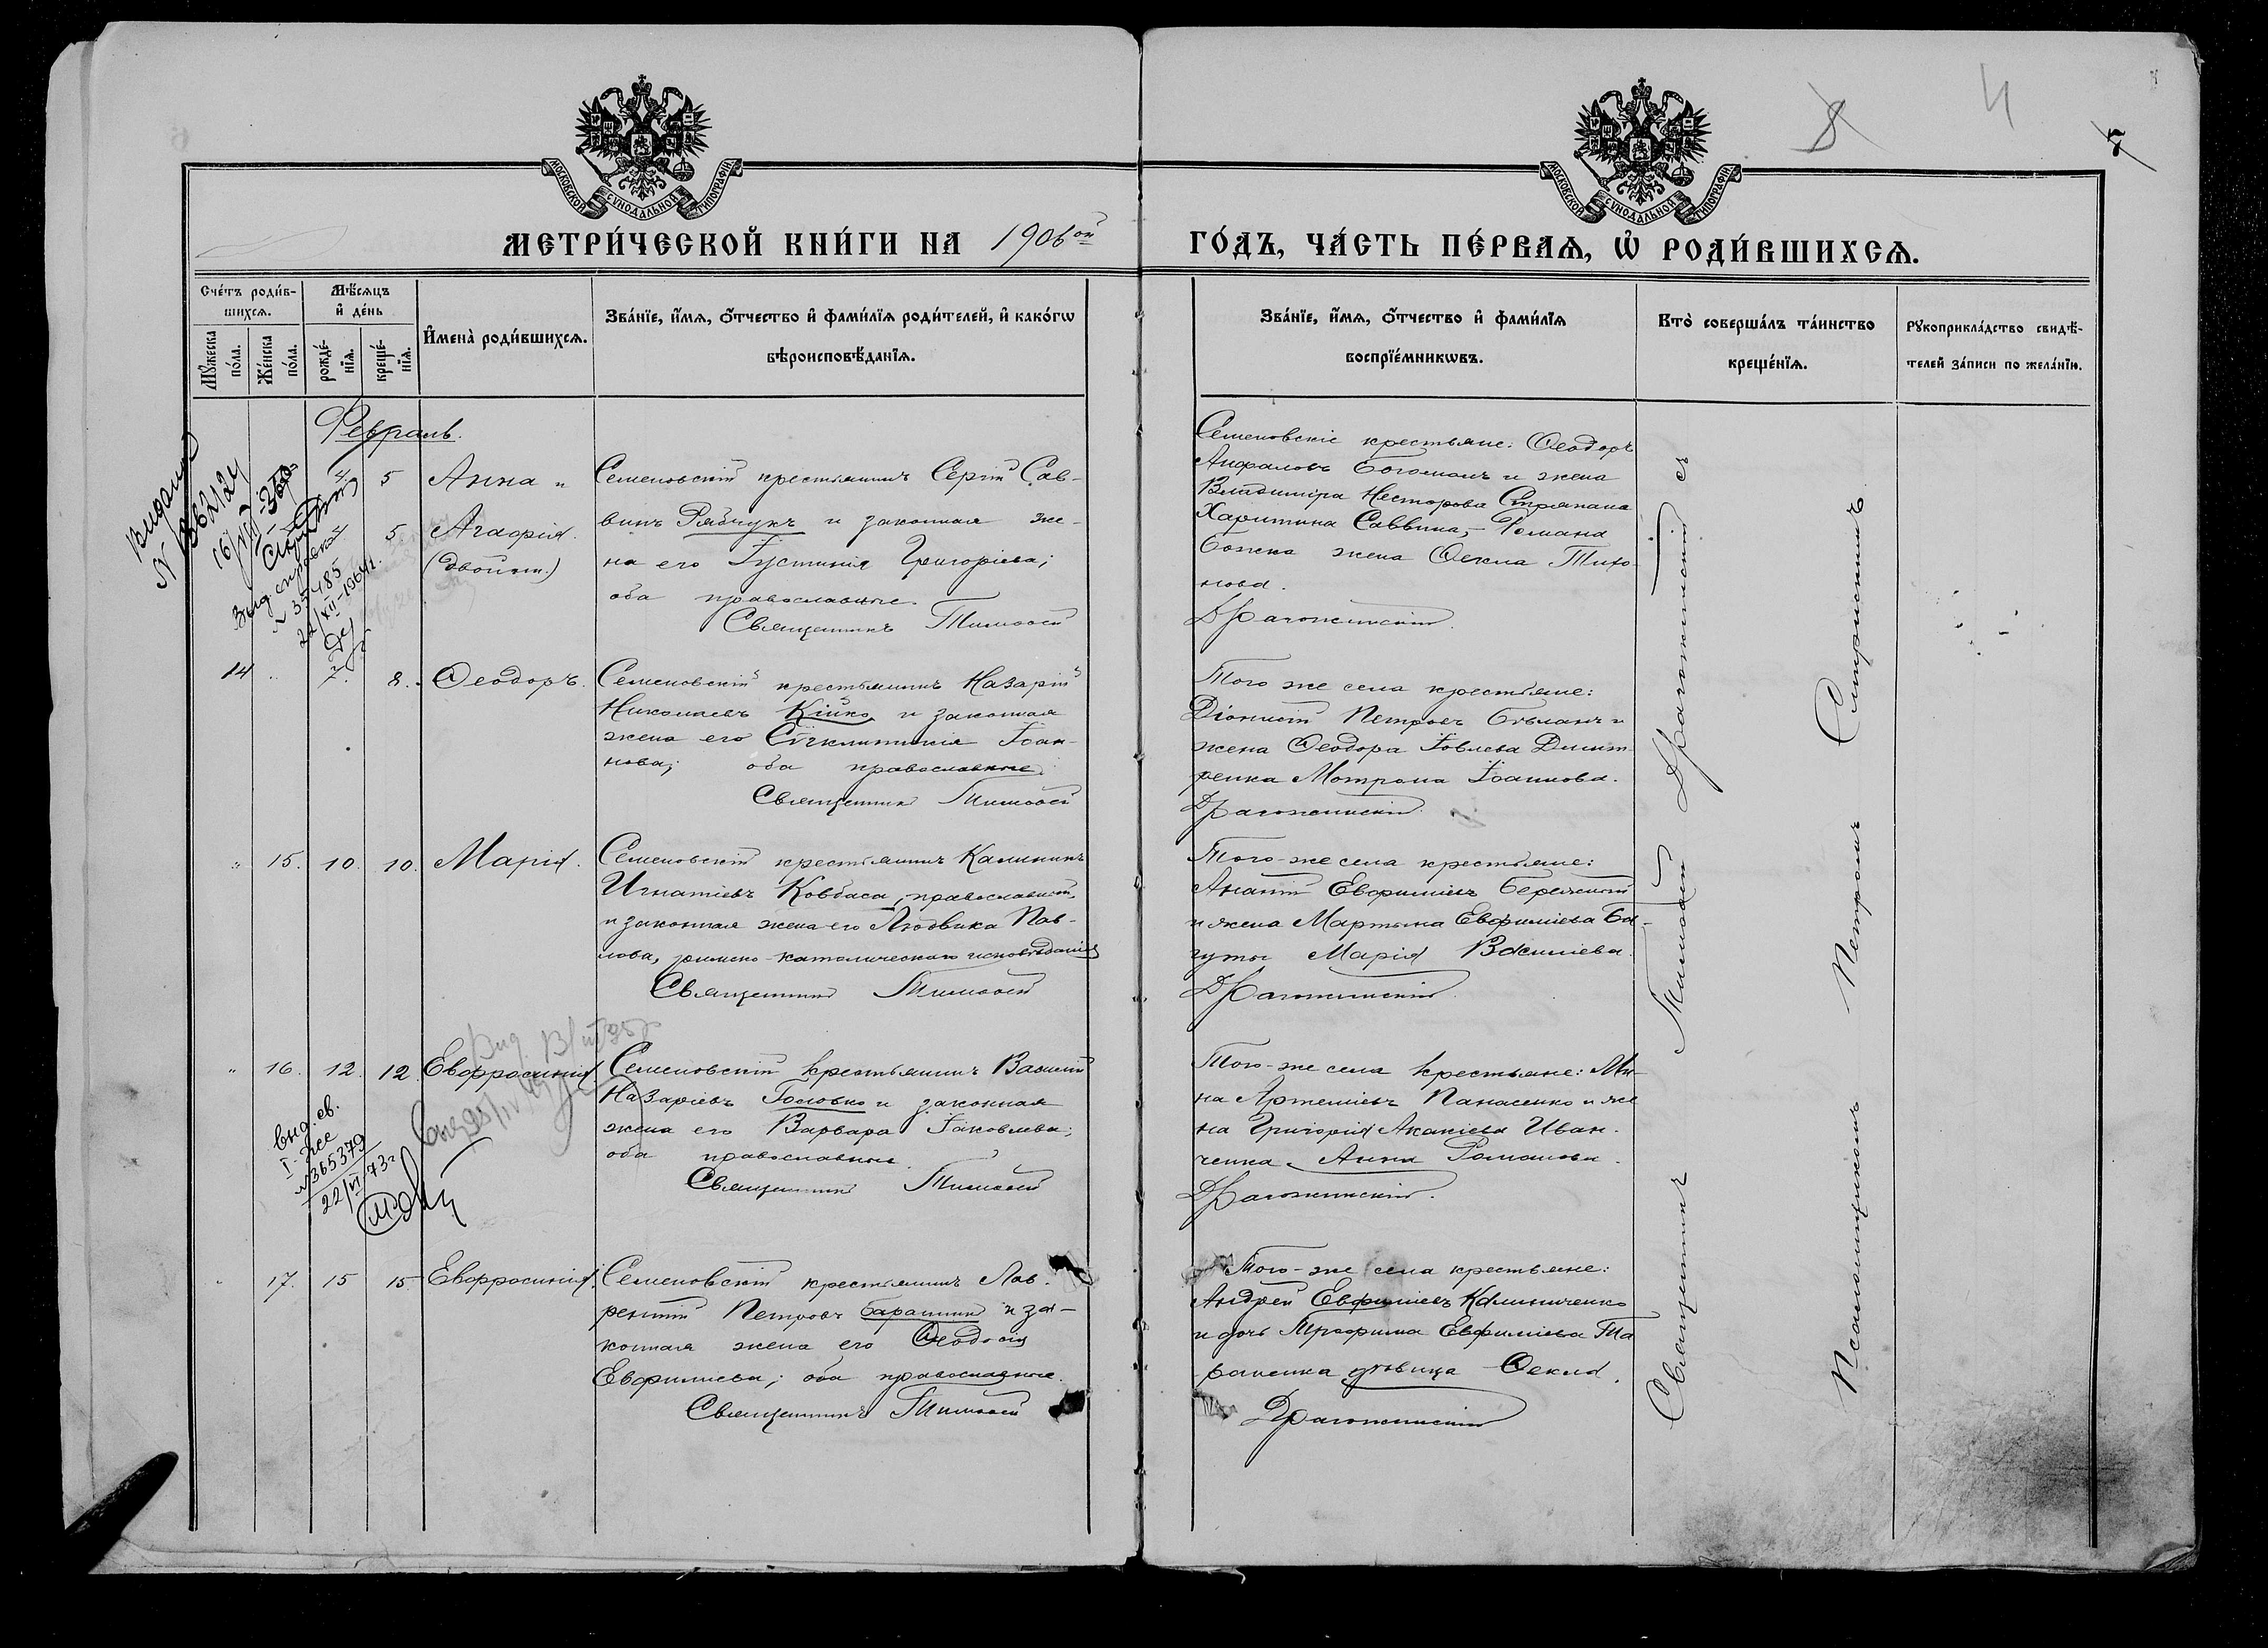 8 4 5
МОСКОВСКОЙ СѴНОДАЛЬНОЙ ТИПОГРАФІИ
МОСКОВСКОЙ СѴНОДАЛЬНОЙ ТИПОГРАФІИ
МЕТРИ́ЧЕСКОЙ КНИ́ГИ НА 1906ой ГО́ДЪ, ЧА́СТЬ ПЕ́РВАѦ, Ѿ РОДИ́ВШИХСѦ.
Сче́тъ роди́в-
шихсѧ.
Мѣ́сѧцъ
и҆ де́нь
Мꙋ́жеска
по́ла.
Же́нска
по́ла.
рожде́-
нїѧ.
креще́-
нїѧ.
И҆мена̀ роди́вшихсѧ.
Зва́нїе, и҆́мѧ, ѻ҆́тчество и҆ фами́лїѧ роди́телей, и҆ како́гѡ
вѣроисповѣ́данїѧ.
Зва́нїе, и҆́мѧ, ѻ҆́тчество и҆ фами́лїѧ
воспрїе́мникѡвъ.
Кто̀ соверша́лъ та́инство
креще́нїѧ.
Рꙋкоприкла́дство свидѣ́-
телей за́писи по жела́нїю.
Февраль.
4. 5 Анна и
5 Агафія.
(двойни.)
Семеновскій крестьянинъ Сергій Сав-
винъ Рябчукъ и законная же-
на его Іустинія Григоріева;
оба православные.
Священникъ Тимофей
Семеновскіе крестьяне: Ѳеодоръ
Богоманъ и жена
Владиміра Несторова Стряпана
Харитина Саввина, - Романа
Божка жена Ѳекла Тихо-
нова.
Драгожинскій.
14 " 7. 8. Ѳеодоръ.
Семеновскій крестьянинъ Назарій
Николаевъ Кійко и законная
жена его Сѵнклитикія Іоан-
нова; оба православные.
Священникъ Тимофей
Того же села крестьяне:
Діонисій Петровъ Бѣланъ и
жена Ѳеодора Іовлева Димит-
ренка Мотрона Іоаннова.
Драгожинскій.
" 15. 10. 10. Марія.
Семеновскій крестьянинъ Калининъ
Игнатіевъ Ковбаса, православный,
и законная жена его Людвика Пав-
лова, римско-католическаго исповѣданія
Священникъ Тимофей
Того-же села крестьяне:
Ананій Евфиміевъ Бережной
и жена Мартина Евфиміева Ба-
гуты Марія Василіева.
Драгожинскій.
" 16. 12. 12. Евфросинія
Семеновскій крестьянинъ Василій
Назаріевъ Головко и законная
жена его Варвара Іаковлева;
оба православные.
Священникъ Тимофей
Того-же села крестьяне: Ми-
на Артеміевъ Панасенко и же-
на Григорія Акакіева Иван-
ченка Анна Романова.
Драгожинскій.
" 17. 15 15 Евфросинія.
Семеновскій крестьянинъ Лав-
рентій Петровъ Барашъ и за-
конная жена его Ѳеодосія
Евфиміева; оба православные.
Священникъ Тимофей
Того-же села крестьяне:
Андрей Евфиміевъ Калиниченко
и дочь Трофима Евфиміева Та-
раненка дѣвица Ѳекла.
Драгожинскій
Священникъ Тимофей Драгожинскій съ
Псаломщикомъ Петромъ Смирскимъ
N 362124
N 37485
22/XII-1964
Выд. св.
N 365379
22/VI 73 г